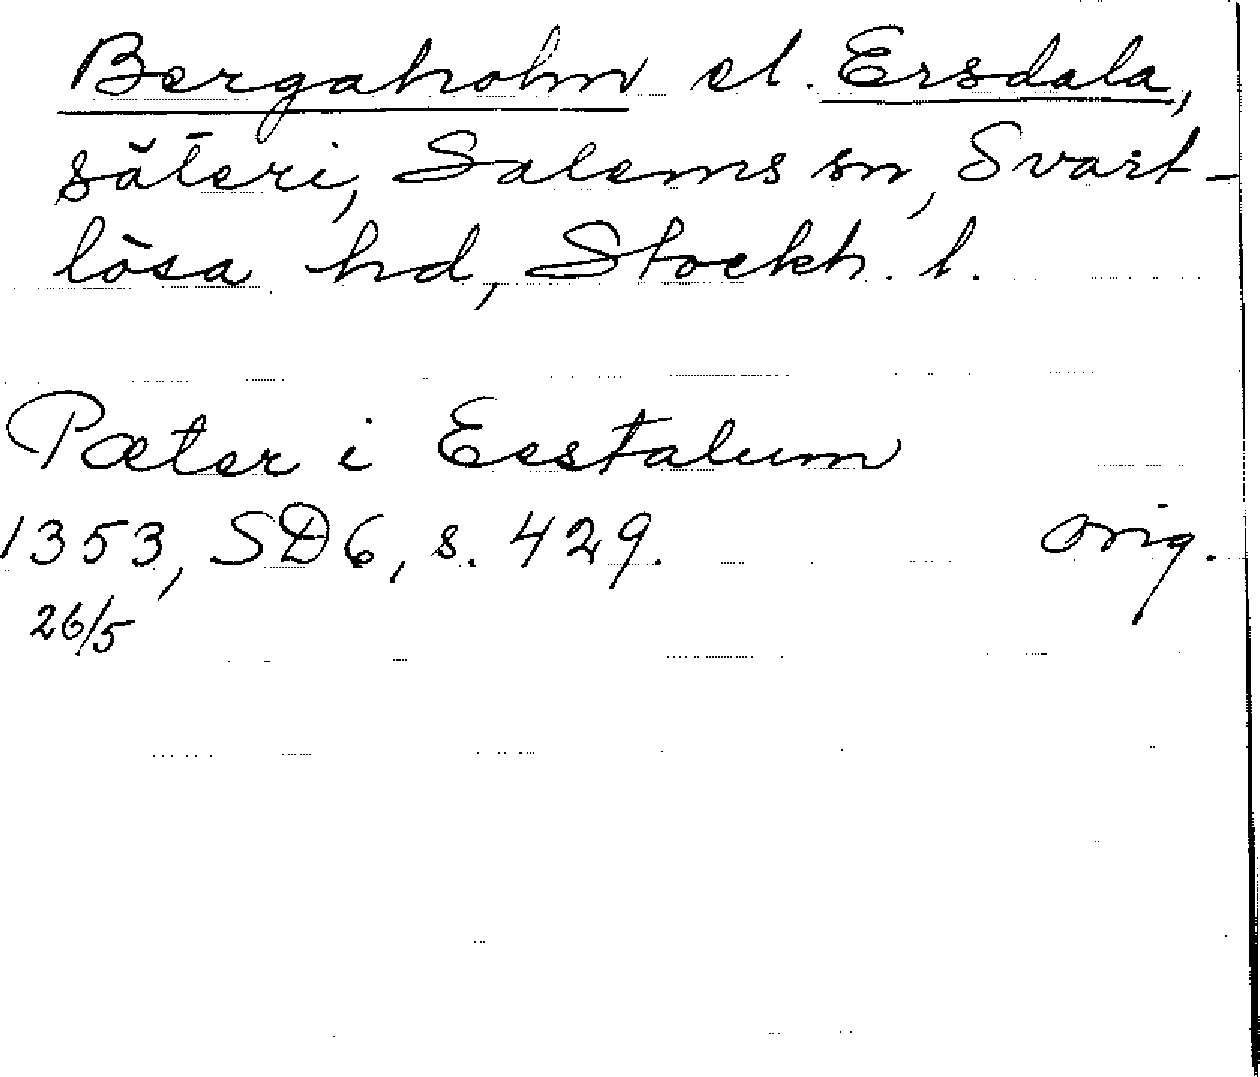 Bergaholm el. Ersdala,
säteri, Salems sn, Svart-
lösa hd, Stockh. l.
Pæter i Eestalum
1353, SD6, s. 429. orig.
26/5